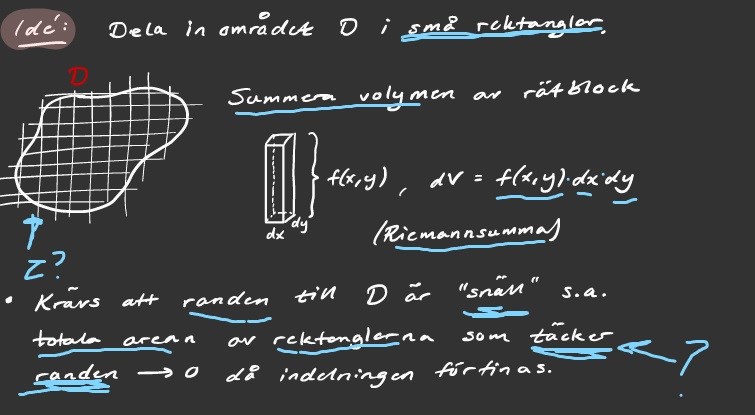 Idé: Dela in området D i små rektanglar.
D
Summera volymen av rätblock
f(x,y), dV = f(x,y)·dx·dy
dx dy
(Riemannsumma)
Z?
• Krävs att randen till D är "snäll" s.a.
totala arean av rektanglarna som täcker
randen → 0 då indelningen förfinas.
?